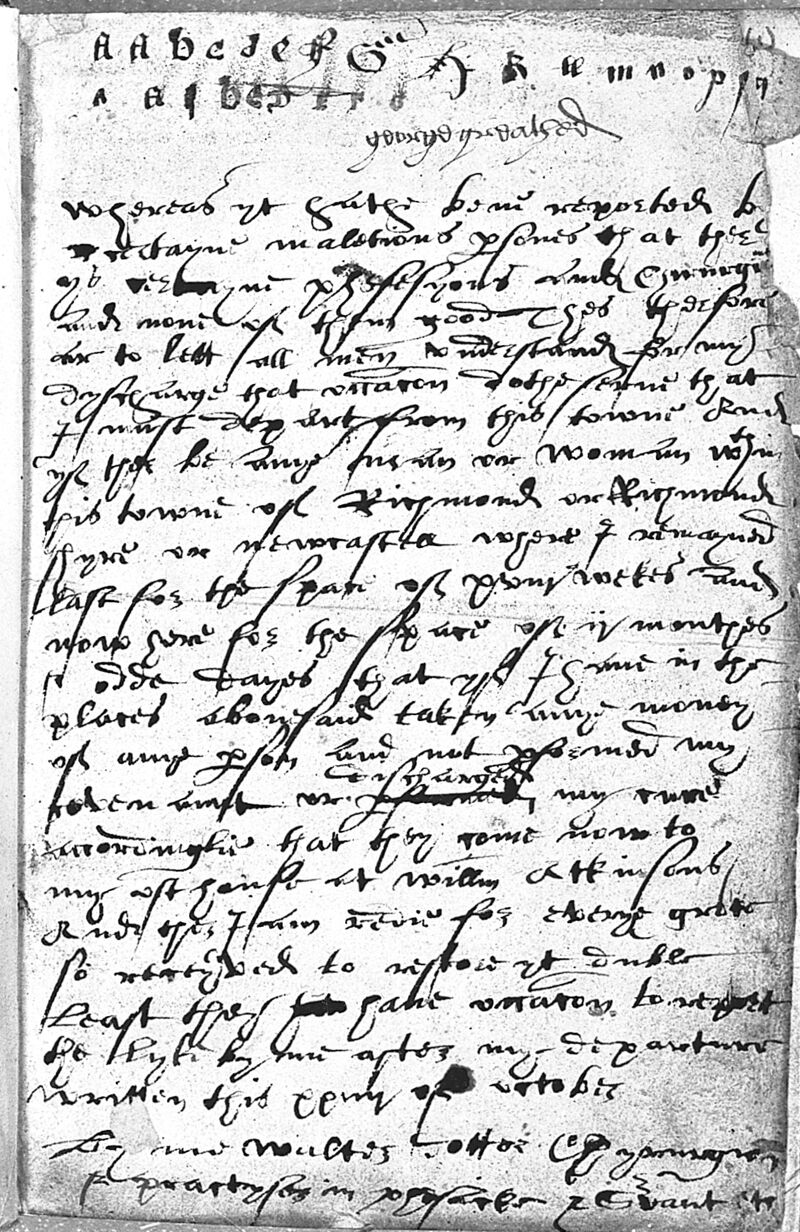 A A b c d e f G H k ll m n o p q
a A b c D
george greathed
Whereas yt hathe bene reported b
certayne maletious psones that there
ys certayne phesesyons and Chirurgi
and none of them good Thes therfore
ar to lett all men understand for my
dyscharge that occacon dothe serve that
I must depart from this towne And
yf ther be anye man or woman wthin
this towne of Richmond or Richmond
shyre or newcastell where I remayned
last for the space of xviij wekes and
now here for the space of ij monthes
odde dayes that yf I have in the
places abovesaid taken anye money
of anye pson and not pformed my
covenannt or dischargede my cure
accordinglie that they come now to
my ost house at Willm Atkinsons
And ther I am redie for everye grote
so receyved to restore yt duble
Least they have occacon to report
the lyke by me after my departure
written this xxiiij of october
By me walter Chyrurgion
practyser in phisicke & Svant to